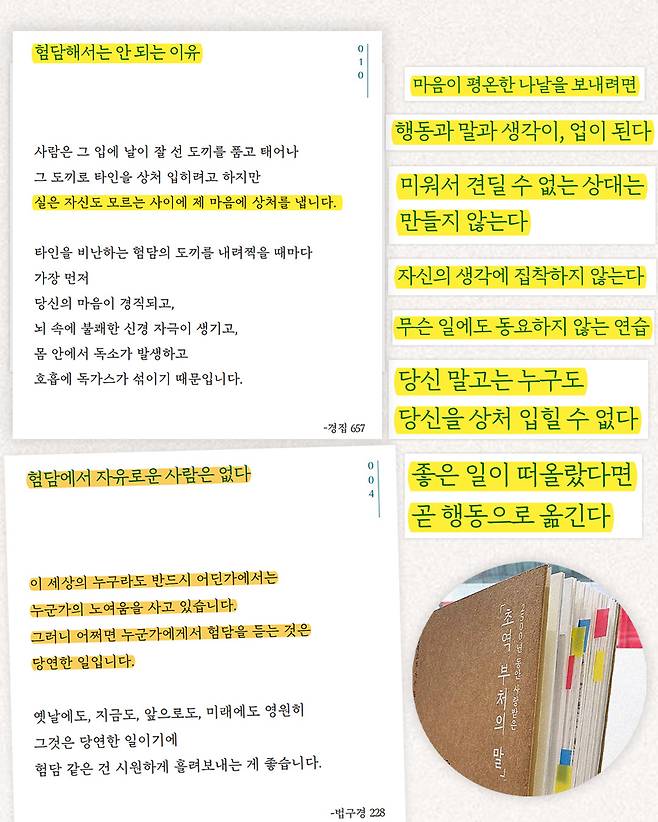 험담해서는 안 되는 이유
010
사람은 그 입에 날이 잘 선 도끼를 품고 태어나
그 도끼로 타인을 상처 입히려고 하지만
실은 자신도 모르는 사이에 제 마음에 상처를 냅니다.
타인을 비난하는 험담의 도끼를 내려찍을 때마다
가장 먼저
당신의 마음이 경직되고,
뇌 속에 불쾌한 신경 자극이 생기고,
몸 안에서 독소가 발생하고
호흡에 독가스가 섞이기 때문입니다.
-경집 657
험담에서 자유로운 사람은 없다
004
이 세상의 누구라도 반드시 어딘가에서는
누군가의 노여움을 사고 있습니다.
그러니 어쩌면 누군가에게서 험담을 듣는 것은
당연한 일입니다.
옛날에도, 지금도, 앞으로도, 미래에도 영원히
그것은 당연한 일이기에
험담 같은 건 시원하게 흘려보내는 게 좋습니다.
-법구경 228
마음이 평온한 나날을 보내려면
행동과 말과 생각이, 업이 된다
미워서 견딜 수 없는 상대는
만들지 않는다
자신의 생각에 집착하지 않는다
무슨 일에도 동요하지 않는 연습
당신 말고는 누구도
당신을 상처 입힐 수 없다
좋은 일이 떠올랐다면
곧 행동으로 옮긴다
2500년 동안 사랑받은
「초역 부처의 말」